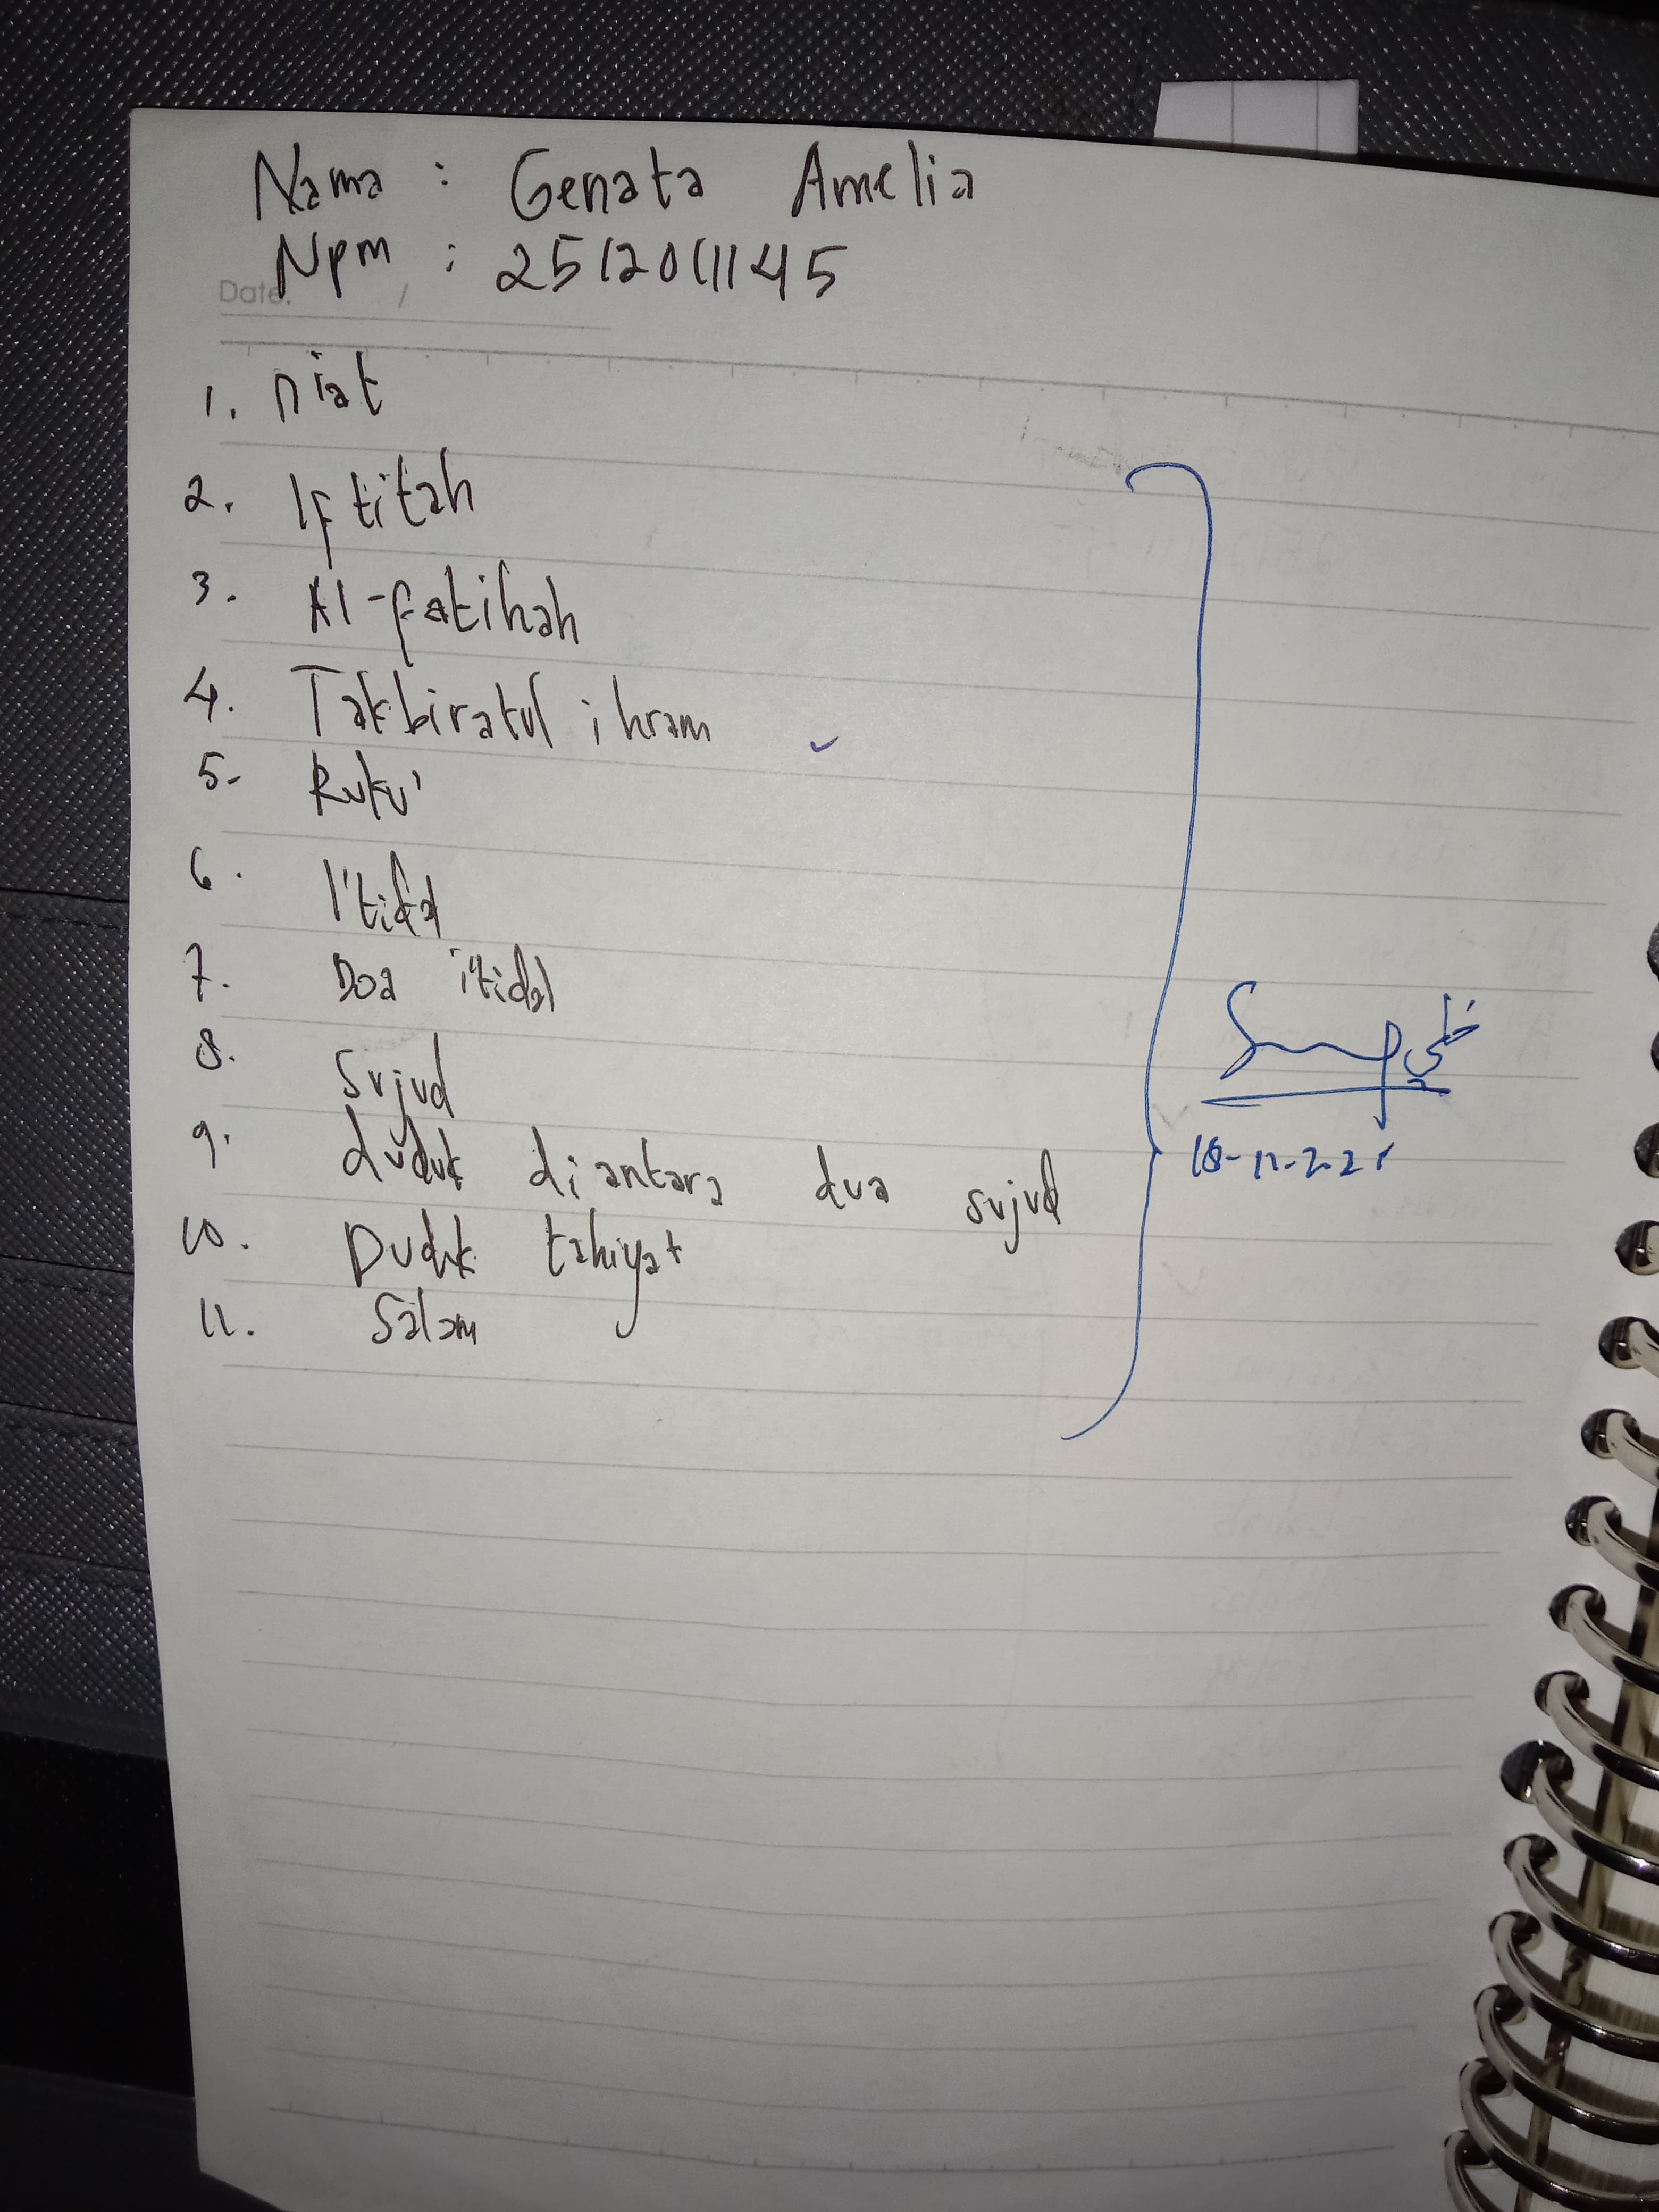 Nama : Genata Amelia
Npm : 2512011145
Date. /
1. niat
2. Iftitah
3. Al-fatihah
4. Takbiratul ihram
5. Ruku'
6. I'tidal
7. Doa i'tidal
8. Sujud
9. duduk diantara dua sujud
10. Duduk tahiyat
11. Salam